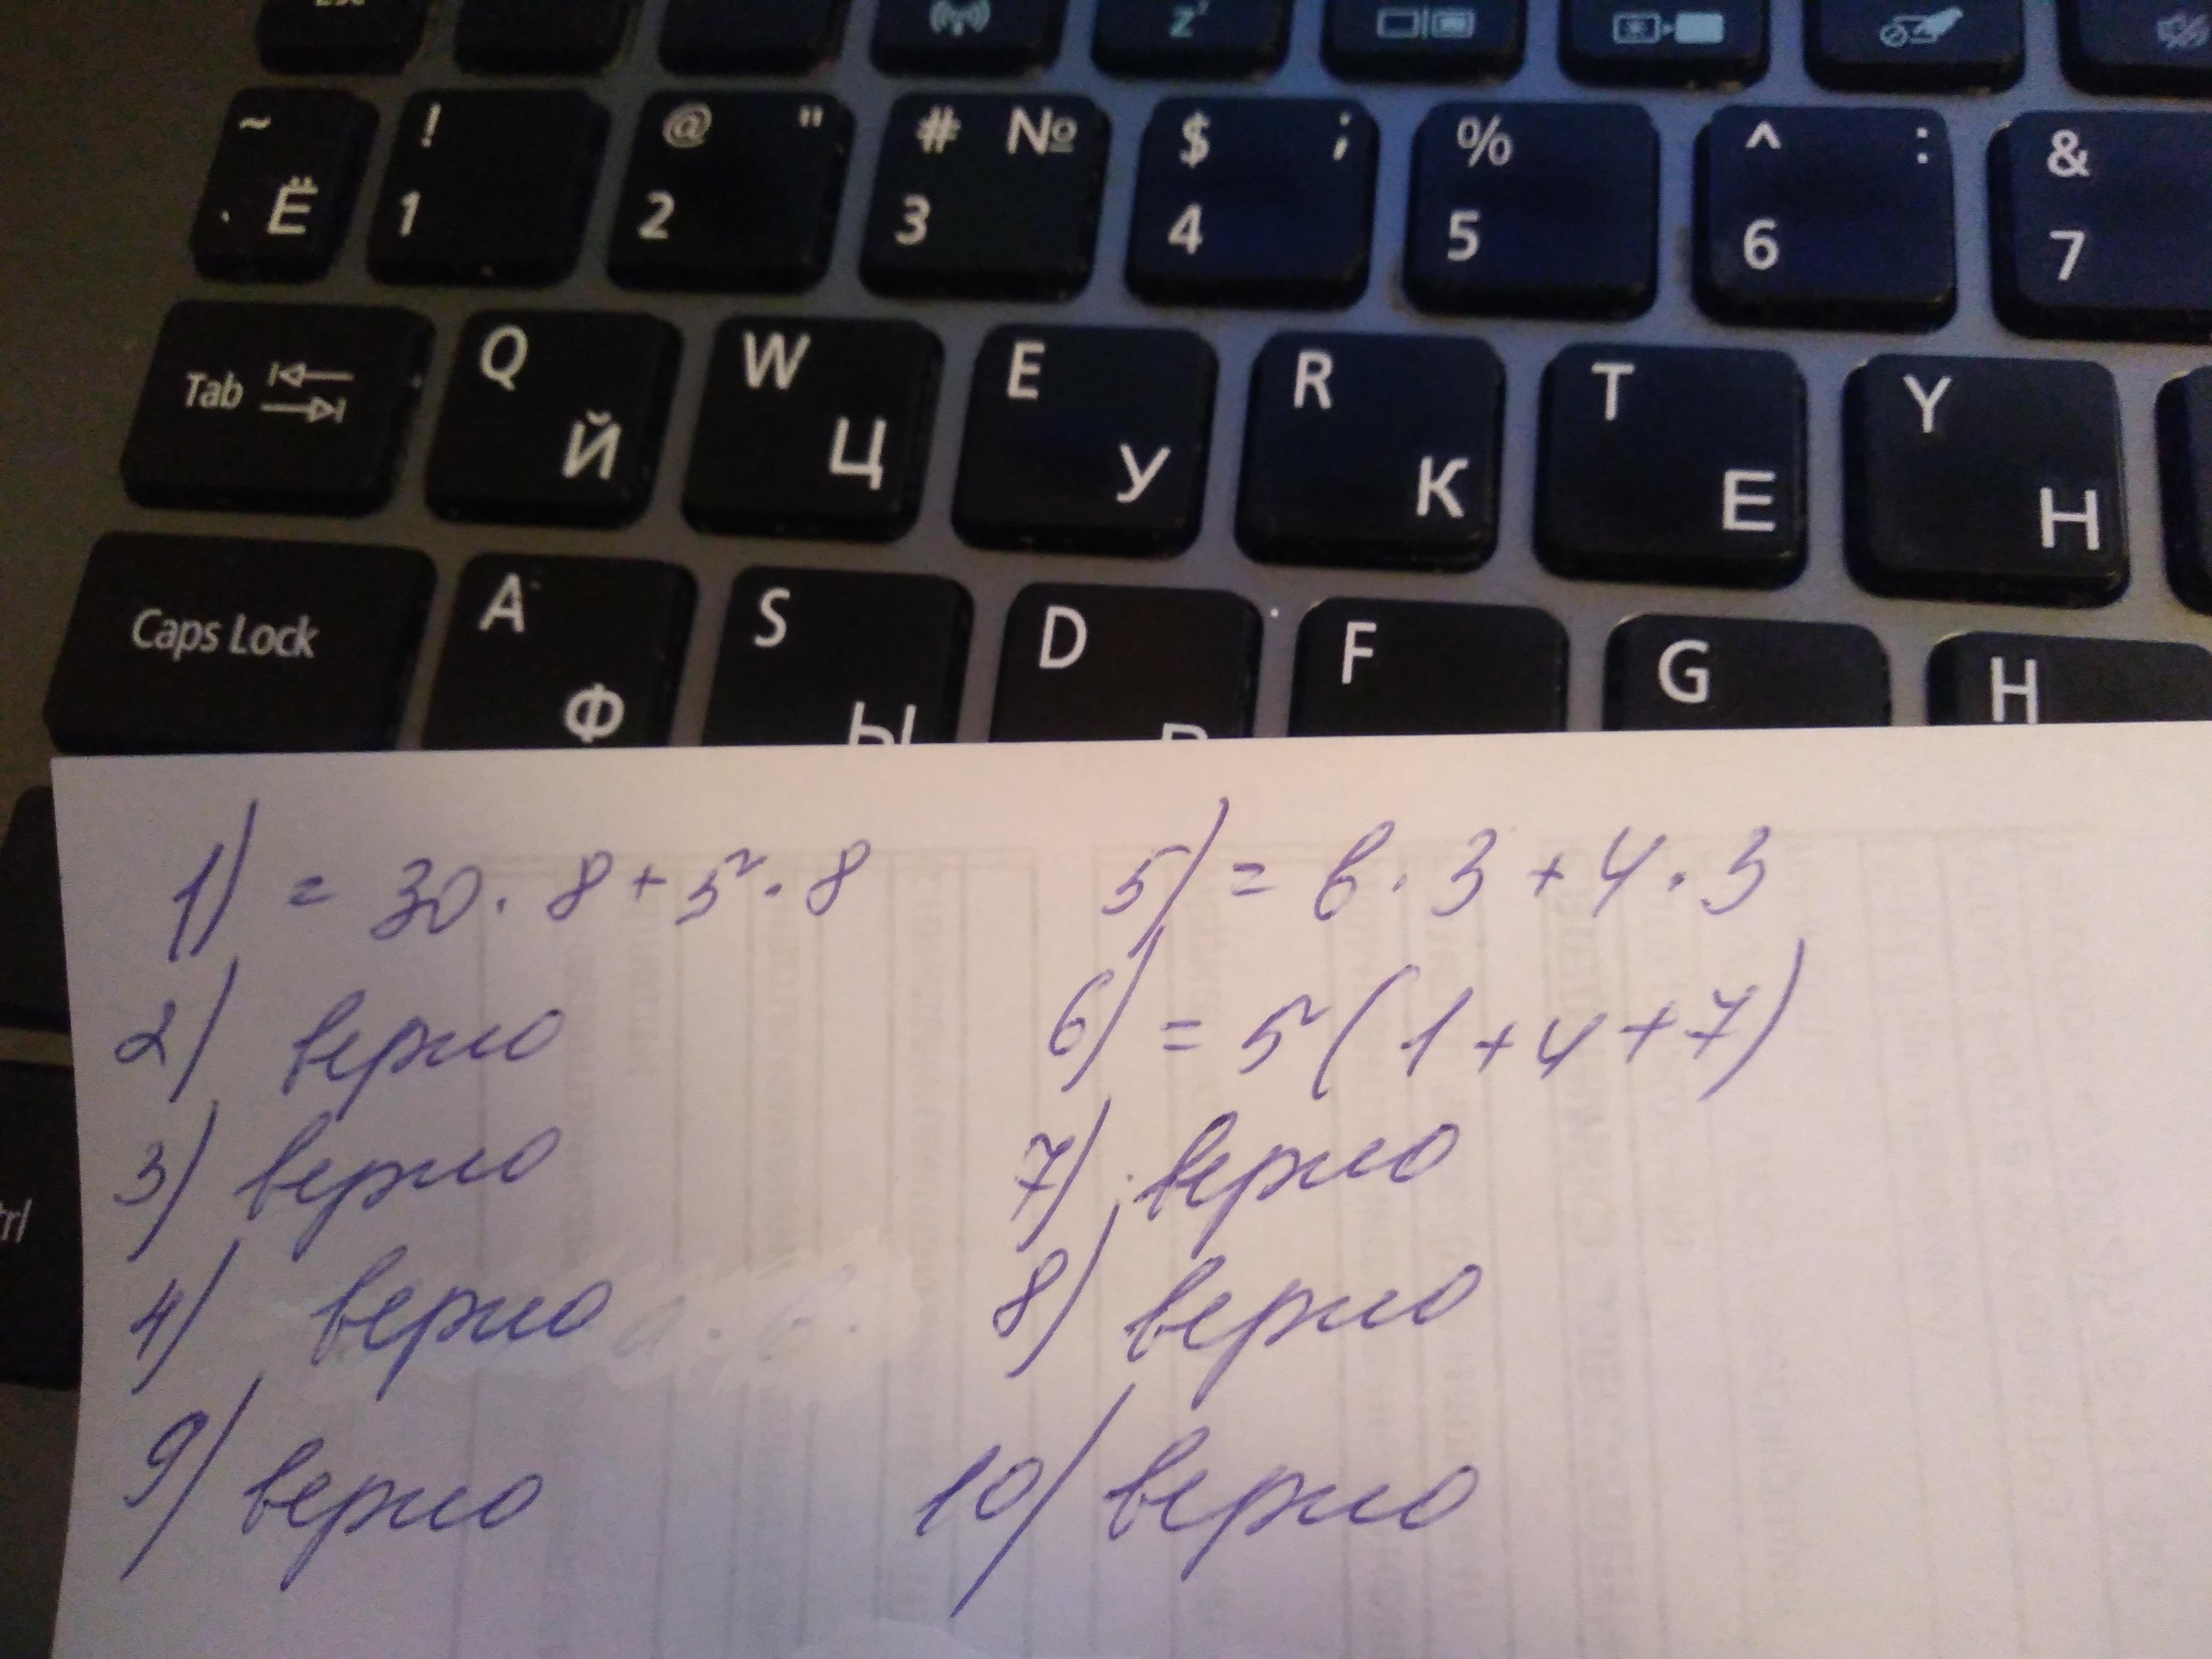 Esc
z
~ Ё
! 1
@ " 2
# № 3
$ ; 4
% 5
^ : 6
& 7
Tab
Q Й
W Ц
E У
R К
T Е
Y Н
Caps Lock
A Ф
S Ы
D В
F
G
H
1) = 30 · 8 + 5 · 8
2) верно
3) верно
4) верно
9) верно
5) = в · 3 + 4 · 3
6) = 5 (1 + 4 + 7)
7) верно
8) верно
10) верно